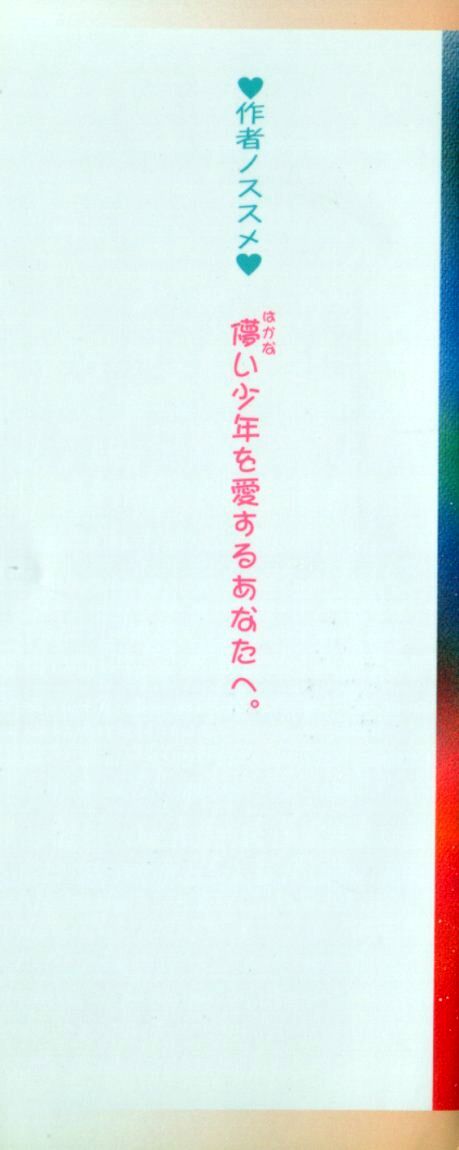 ♥作者ノススメ♥
儚い少年を愛するあなたへ。
はかな